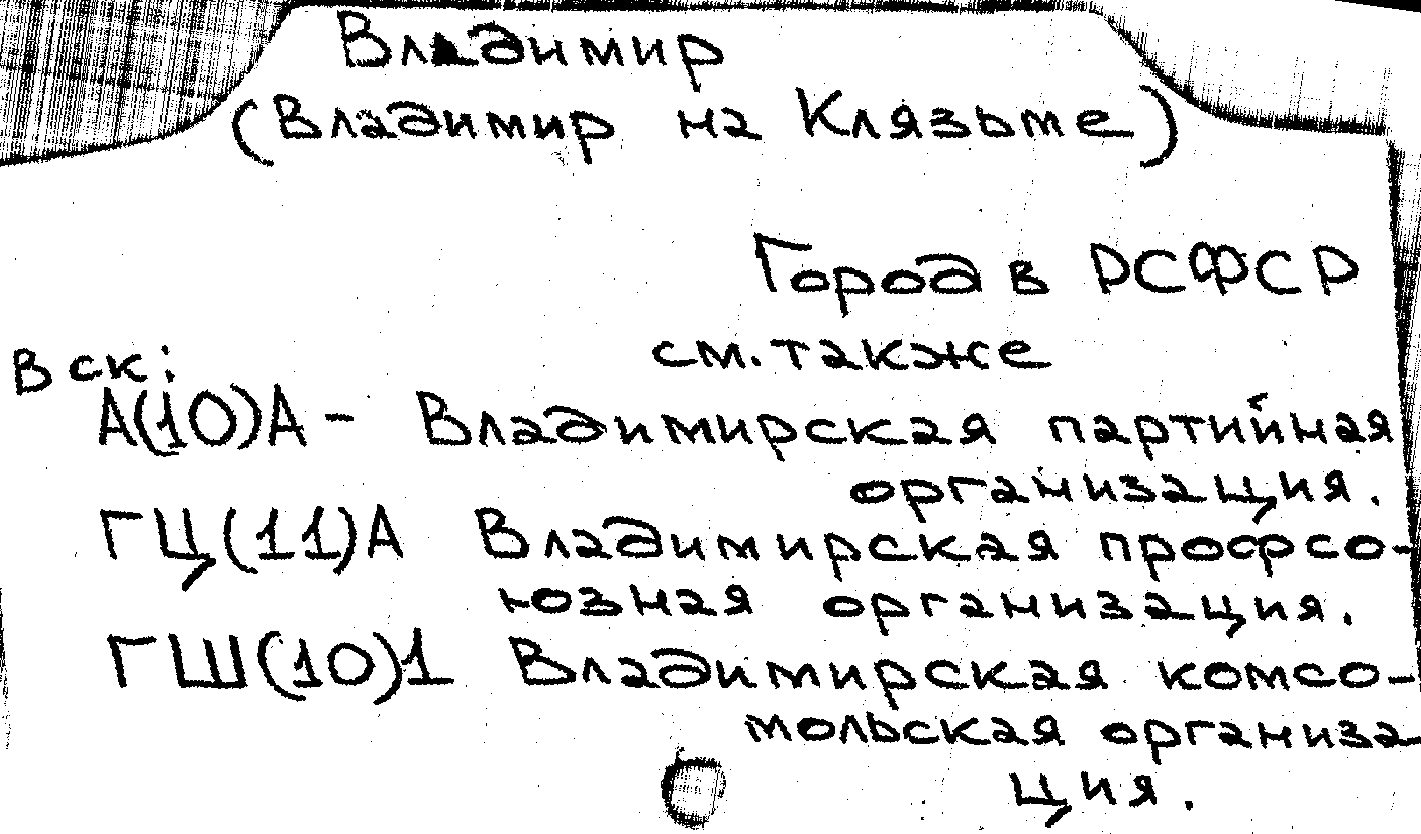 Владимир
(Владимир на Клязьме)
Город в РСФСР
см. также
В ск:
А(10)А - Владимирская партийная
организация.
ГЦ(11)А Владимирская профсо-
юзная организация.
ГШ(10)1 Владимирская комсо-
мольская организа
ция.